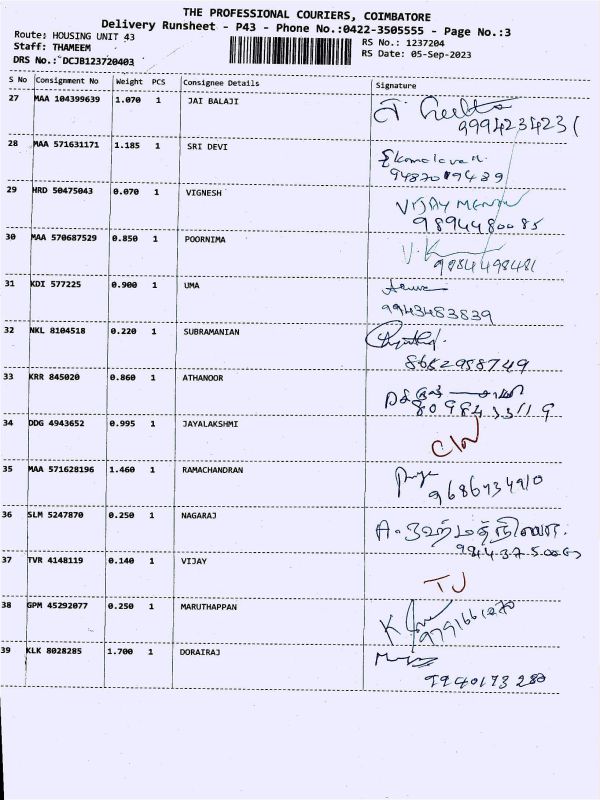 THE PROFESSIONAL COURIERS, COIMBATORE
Delivery Runsheet - P43 - Phone No.:0422-3505555 - Page No.:3
Route: HOUSING UNIT 43
Staff: THAMEEM
DRS No.: DCJB123720403
RS No.: 1237204
RS Date: 05-Sep-2023
S No Consignment No Weight PCS Consignee Details Signature
27 MAA 104399639 1.070 1 JAI BALAJI
9994234231
28 MAA 571631171 1.185 1 SRI DEVI
9487019439
29 HRD 50475043 0.070 1 VIGNESH VIJAY MENON
9894480085
30 MAA 570687529 0.850 1 POORNIMA
9984498481
31 KDI 577225 0.900 1 UMA
9943483839
32 NKL 8104518 0.220 1 SUBRAMANIAN
8652958749
33 KRR 845020 0.860 1 ATHANOOR
34 DDG 4943652 0.995 1 JAYALAKSHMI
35 MAA 571628196 1.460 1 RAMACHANDRAN
9686734910
36 SLM 5247870 0.250 1 NAGARAJ
37 TVR 4148119 0.140 1 VIJAY
TJ
38 GPM 45292077 0.250 1 MARUTHAPPAN
9791661270
39 KLK 8028285 1.700 1 DORAIRAJ
9940173280